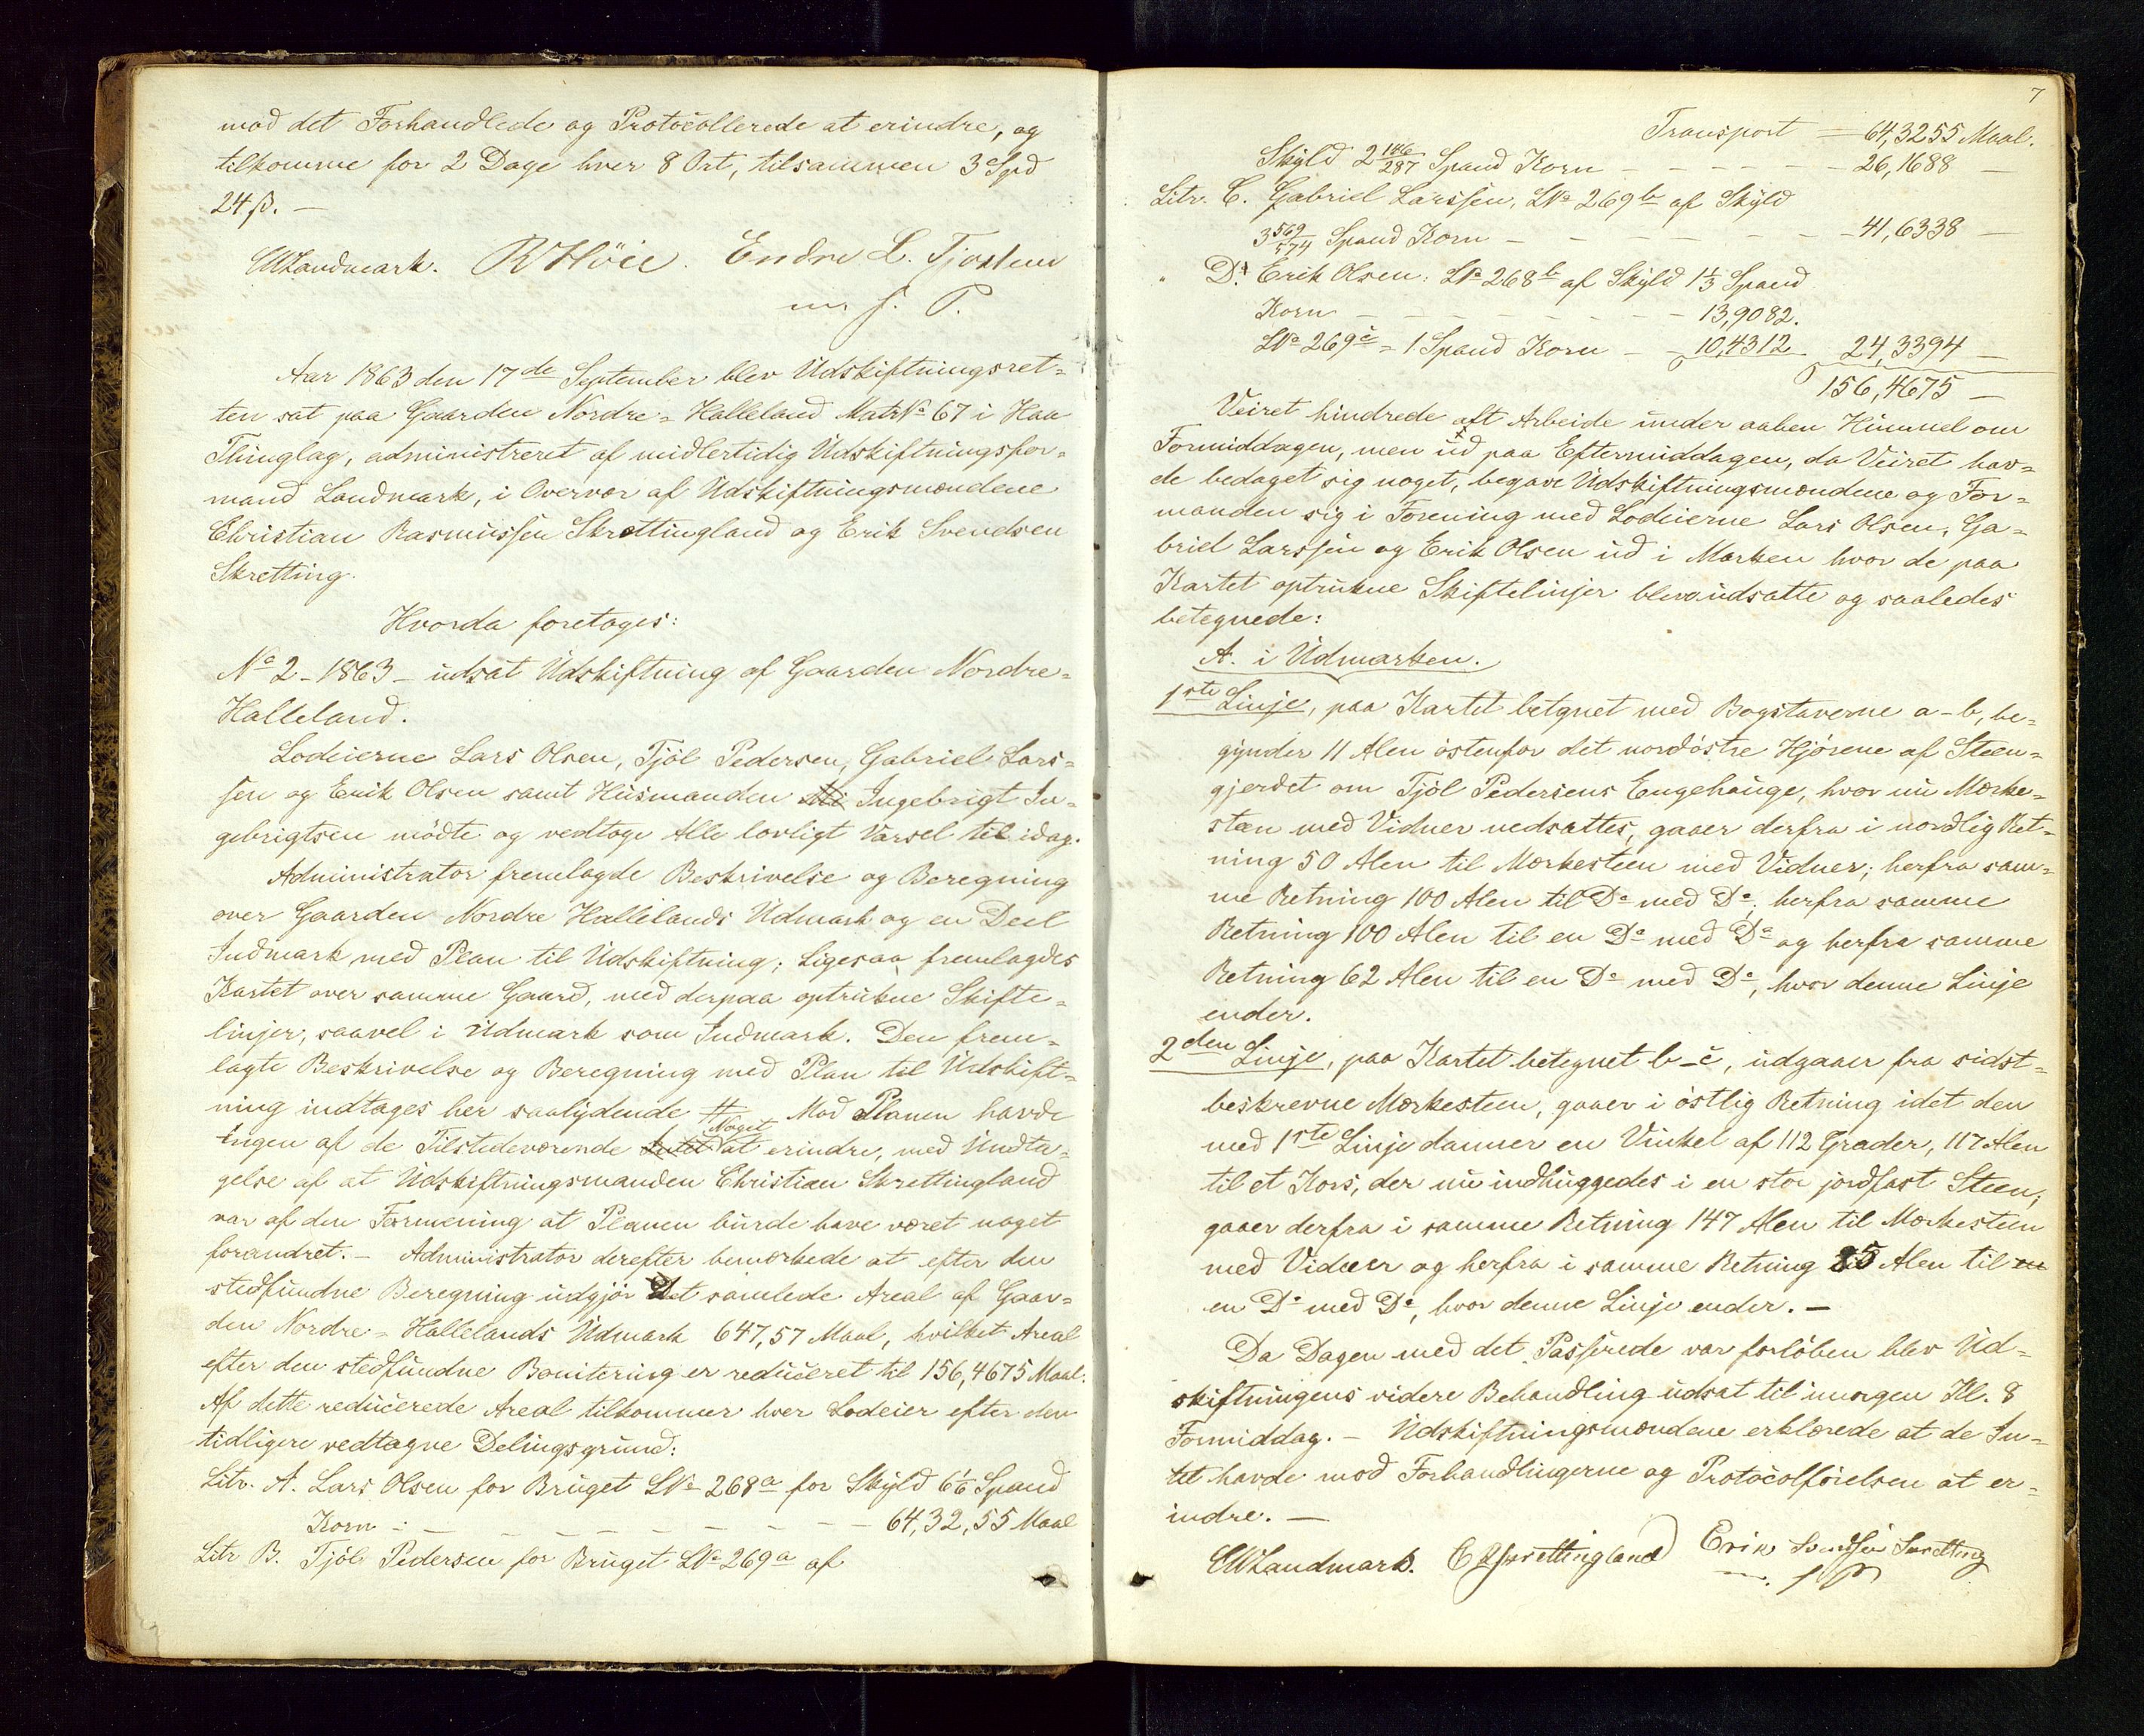 mod det Forhandlede og Protocollerede at erindre, og
tilkomme for 2 Dage hver 8 Ort, tilsammen 3 Spd
24 ß. —
Landmark. R Höie. Endre L. Tjostem
m. f. P.
Aar 1863 den 17de September blev Udskiftningsret-
ten sat paa Gaarden Nordre-Halleland Matr No 67 i Haa
Thinglag, administreret af midlertidig Udskiftningsfor-
mand Landmark, i Overvær af Udskiftningsmændene
Christian Rasmussen Skrettingland og Erik Svendsen
Skretting.
Hvorda foretoges:
No 2 - 1863 - udsat Udskiftning af Gaarden Nordre-
Halleland.
Lodeierne Lars Olsen, Tjöl Pedersen, Gabriel Lars-
sen og Erik Olsen samt Husmanden Ingebrigt In-
gebrigtsen mödte og vedtoge Alle lovligt Varsel til idag.
Administrator fremlagde Beskrivelse og Beregning
over Gaarden Nordre Hallelands Udmark og en Deel
Indmark med Plan til Udskiftning; Ligesaa fremlagdes
Kartet over samme Gaard, med derpaa optrukne Skifte-
linjer, saavel i Udmark som Indmark. Den frem-
lagte Beskrivelse og Beregning med Plan til Udskift-
ning indtages her saalydende # Mod Planen havde
Ingen af de Tilstedeværende Noget at erindre, med Undta-
gelse af at Udskiftningsmanden Christian Skrettingland
var af den Formening at Planen burde have været noget
forandret. — Administrator derefter bemærkede at efter den
stedfundne Beregning udgjör det samlede Areal af Gaar-
den Nordre-Hallelands Udmark 647,57 Maal, hvilket Areal
efter den stedfundne Bonitering er reduceret til 156,4675 Maal.
Af dette reducerede Areal tilkommer hver Lodeier efter den
tidligere vedtagne Delingsgrund:
Litr. A. Lars Olsen for Bruget LNo 268a for Skyld 6 1/6 Spand
Korn - — — — — — — — 64,32,55 Maal
Litr B. Tjöl Pedersen for Bruget LNo 269a af
7
Transport = 64,3255 Maal.
Skyld 2 146/287 Spand Korn — — — — 26,1688 —
Litr. C. Gabriel Larssen, LNo 269b af Skyld
3 569/574 Spand Korn — — — — — 41,6338 —
" D. Erik Olsen, LNo 268b af Skyld 1 1/3 Spand
Korn — — — — — — 13,9082.
LNo 269c = 1 Spand Korn — — 10,4312 24,3394 —
156,4675 —
Veiret hindrede alt Arbeide under aaben Himmel om
Formiddagen, men ud paa Eftermiddagen, da Veiret hav-
de bedaget sig noget, begave Udskiftningsmændene og For-
manden sig i Forening med Lodeierne Lars Olsen, Ga-
briel Larssen og Erik Olsen ud i Marken hvor de paa
Kartet optrukne Skiftelinjer bleve udsatte og saaledes
betegnede:
A. i Udmarken.
1ste Linje, paa Kartet betgnet med Bogstaverne a - b, be-
gynder 11 Alen östenfor det nordöstre Hjörne af Steen-
gjerdet om Tjöl Pedersens Engehauge, hvor nu Mærke-
steen med Vidner nedsattes, gaaer derfra i nordlig Ret-
ning 50 Alen til Mærkesteen med Vidner; herfra sam-
me Retning 100 Alen til Do med Do; herfra samme
Retning 100 Alen til en Do med Do og herfra samme
Retning 62 Alen til en Do med Do, hvor denne Linje
ender.
2den Linje, paa Kartet betegnet b - c, udgaaer fra sidst-
beskrevne Mærkesteen, gaaer i östlig Retning idet den
med 1ste Linje danner en Vinkel af 112 Grader, 117 Alen
til et Kors, der nu indhuggedes i en stor jordfast Steen,
gaaer derfra i samme Retning 147 Alen til Mærkesteen
med Vidner og herfra i samme Retning 85 Alen til en
en Do med Do, hvor denne Linje ender. —
Da Dagen med det Passerede var forlöben blev Ud-
skiftningens videre Behandling udsat til imorgen Kl. 8
Formiddag. — Udskiftningsmændene erklærede at de In-
tet havde mod Forhandlingerne og Protocolförelsen at er-
indre. —
Landmark. C R Skrettingland Erik Svendsen Skretting
m. f. P.